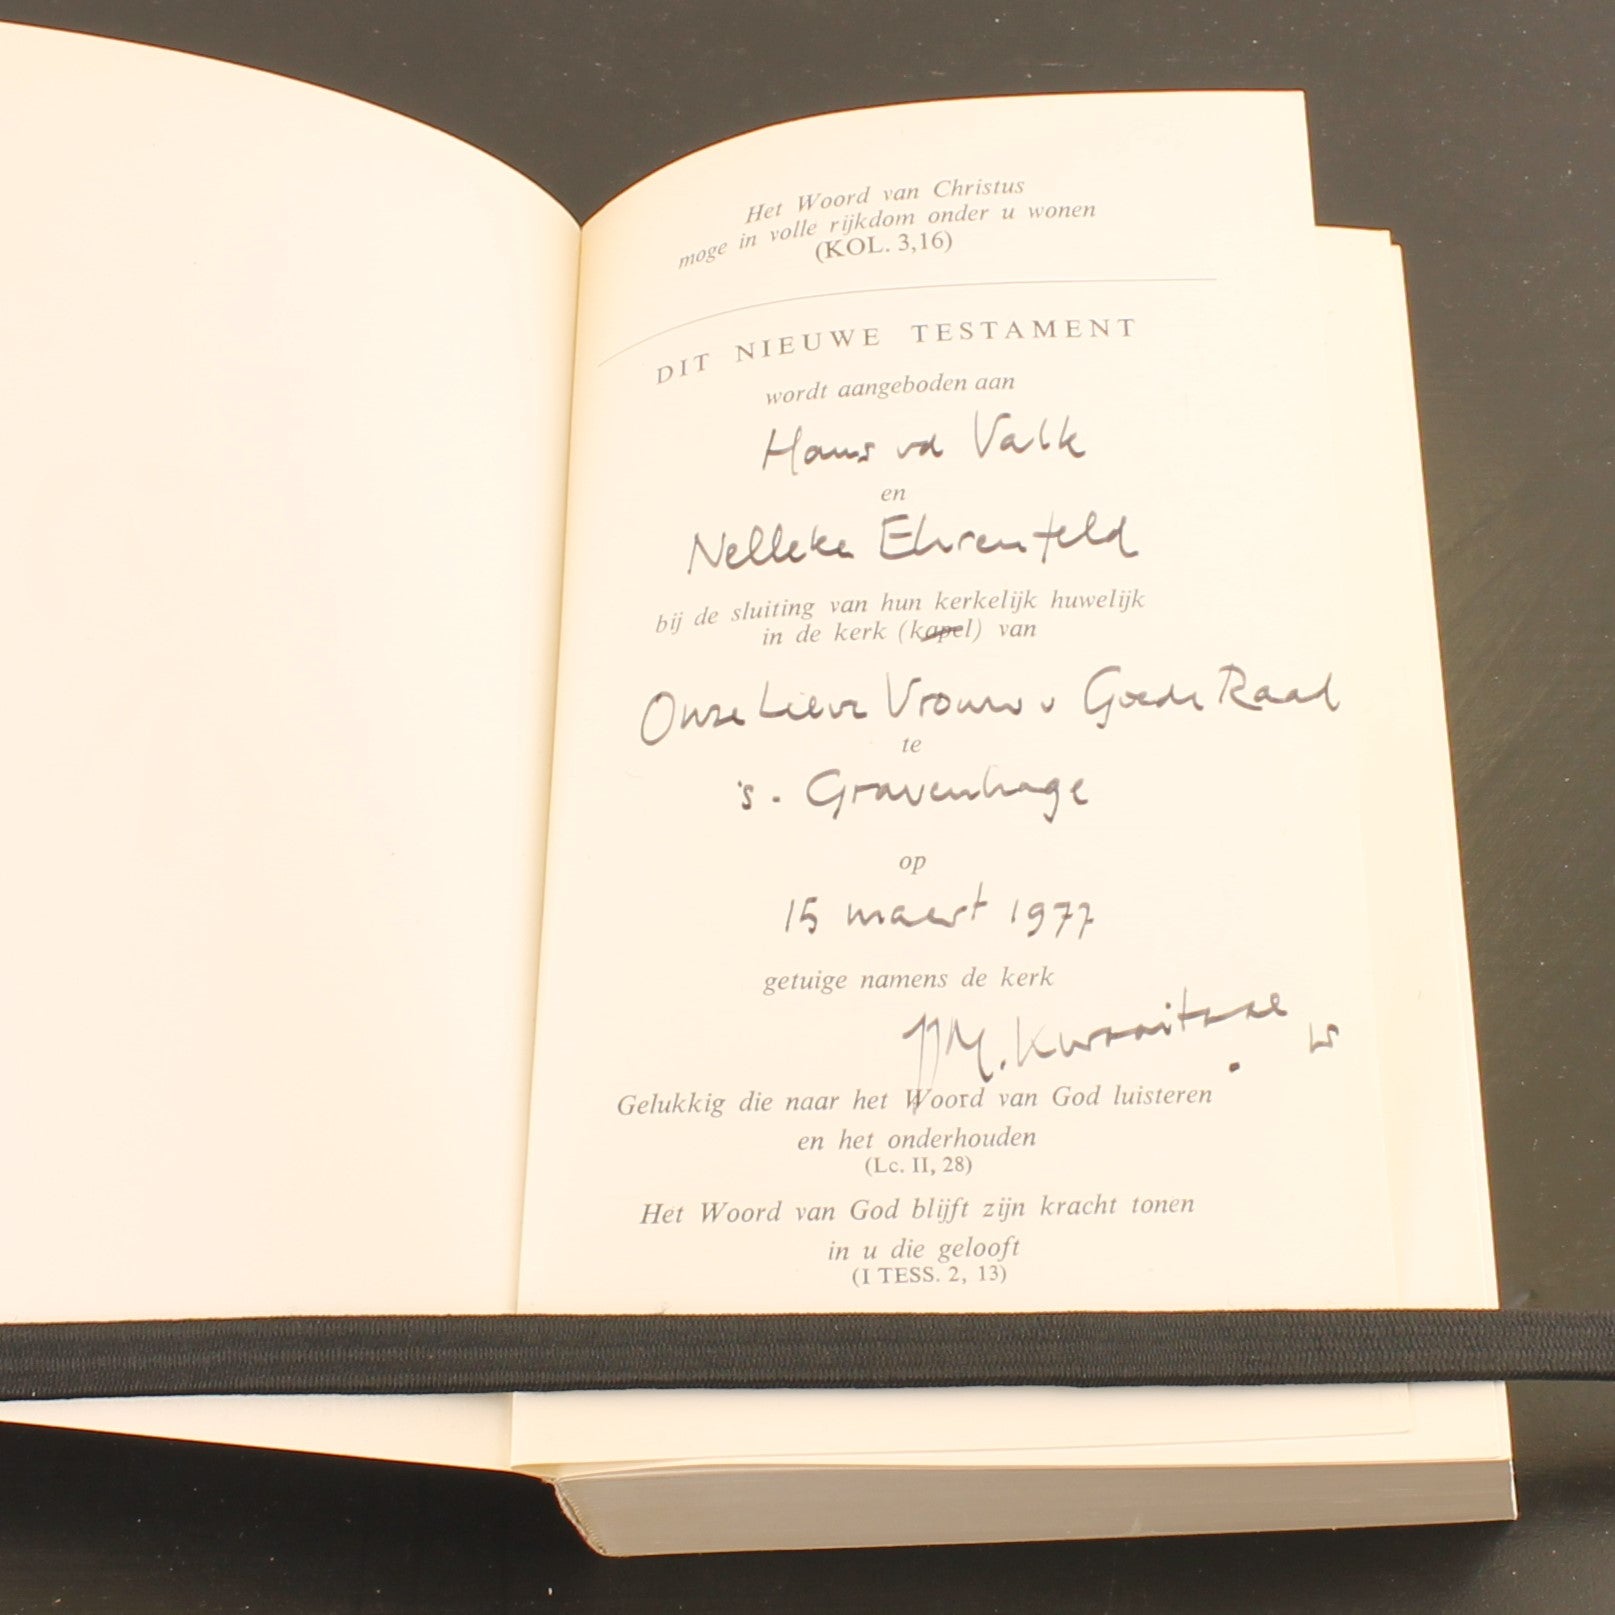 Het Woord van Christus
moge in volle rijkdom onder u wonen
(KOL. 3,16)
DIT NIEUWE TESTAMENT
wordt aangeboden aan
Hans vd Valk
en
Nelleke Ehrenfeld
bij de sluiting van hun kerkelijk huwelijk
in de kerk (kapel) van
Onze Lieve Vrouw v Goede Raad
te
's. Gravenhage
op
15 maart 1977
getuige namens de kerk
JJM.
Gelukkig die naar het Woord van God luisteren
en het onderhouden
(Lc. II, 28)
Het Woord van God blijft zijn kracht tonen
in u die gelooft
(I TESS. 2, 13)